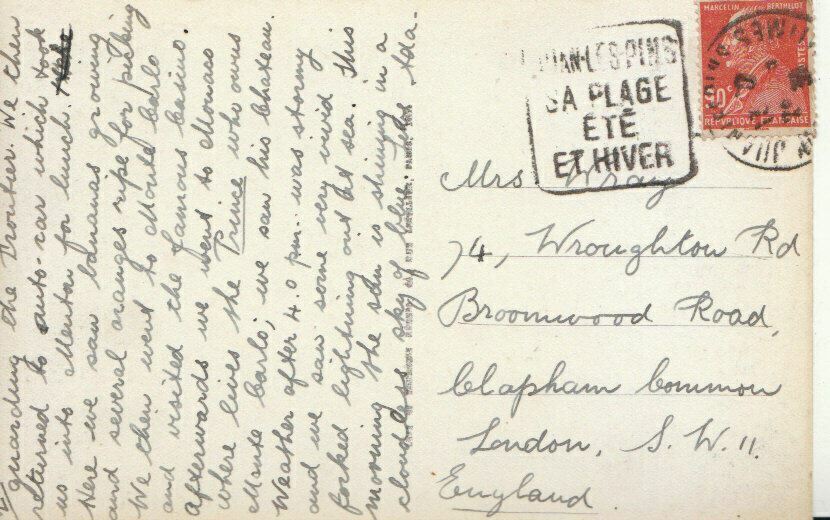 II guarding the Frontier. We then
returned to auto-car which took
us into Menton for lunch
Here we saw bananas growing
and several oranges ripe for picking
We then went to Monte Carlo
and visited the famous casino.
Afterwards we went to Monaco
where lives the Prince who owns
Monte Carlo; we saw his chateau.
Weather after 4.0 pm. was stormy
and we saw some very vivid
forked lightning out at sea. This
morning the sun is shining in a
cloudless sky of blue.
JUAN-LES-PINS
SA PLAGE
ÉTÉ
ET HIVER
MARCELIN BERTHELOT
POSTES
90c
REPVBLIQVE FRANÇAISE
JUAN
Mrs Wray
74, Wroughton Rd
Broomwood Road,
Clapham Common
London, S.W. 11.
England.